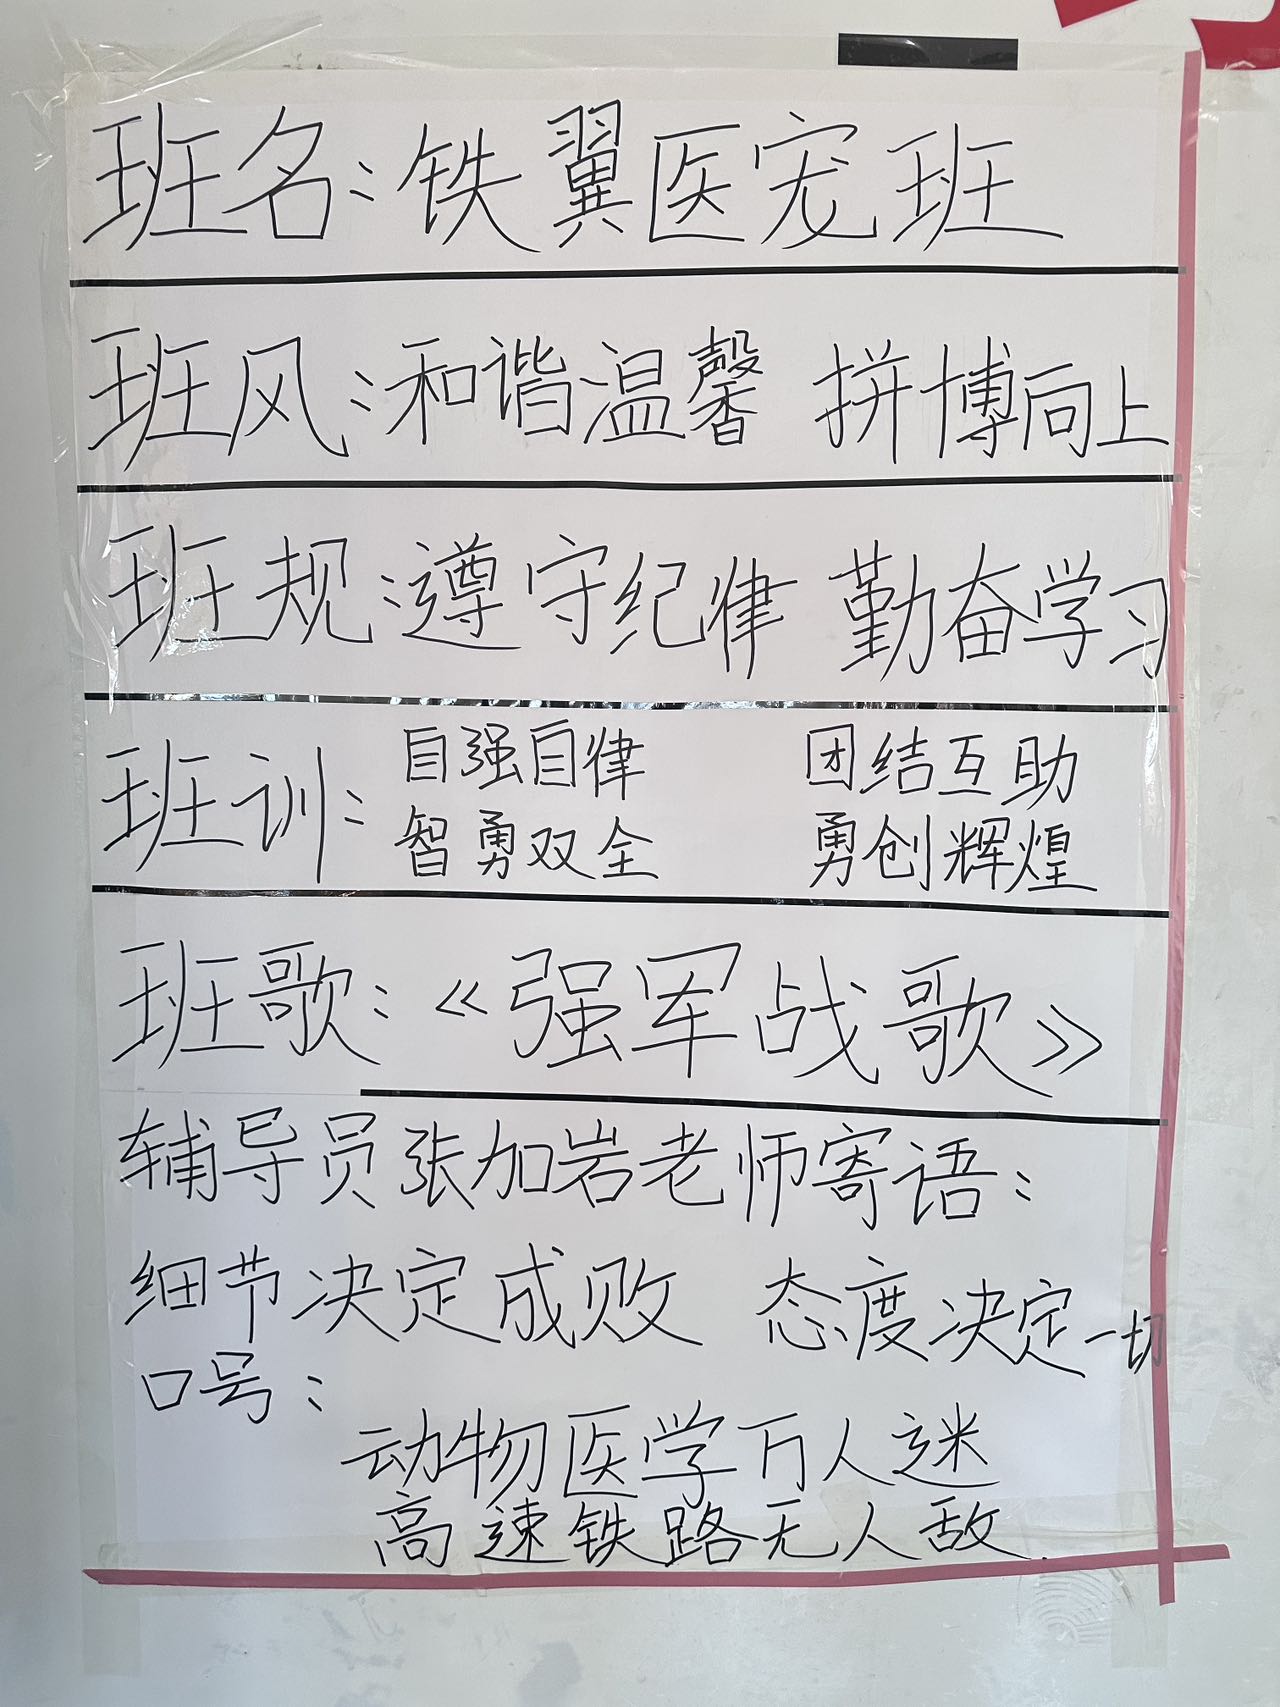 班名：铁翼医宠班
班风：和谐温馨 拼博向上
班规：遵守纪律 勤奋学习
班训：自强自律 团结互助
智勇双全 勇创辉煌
班歌：《强军战歌》
辅导员张加岩老师寄语：
细节决定成败 态度决定一切
口号：
动物医学万人迷
高速铁路无人敌.